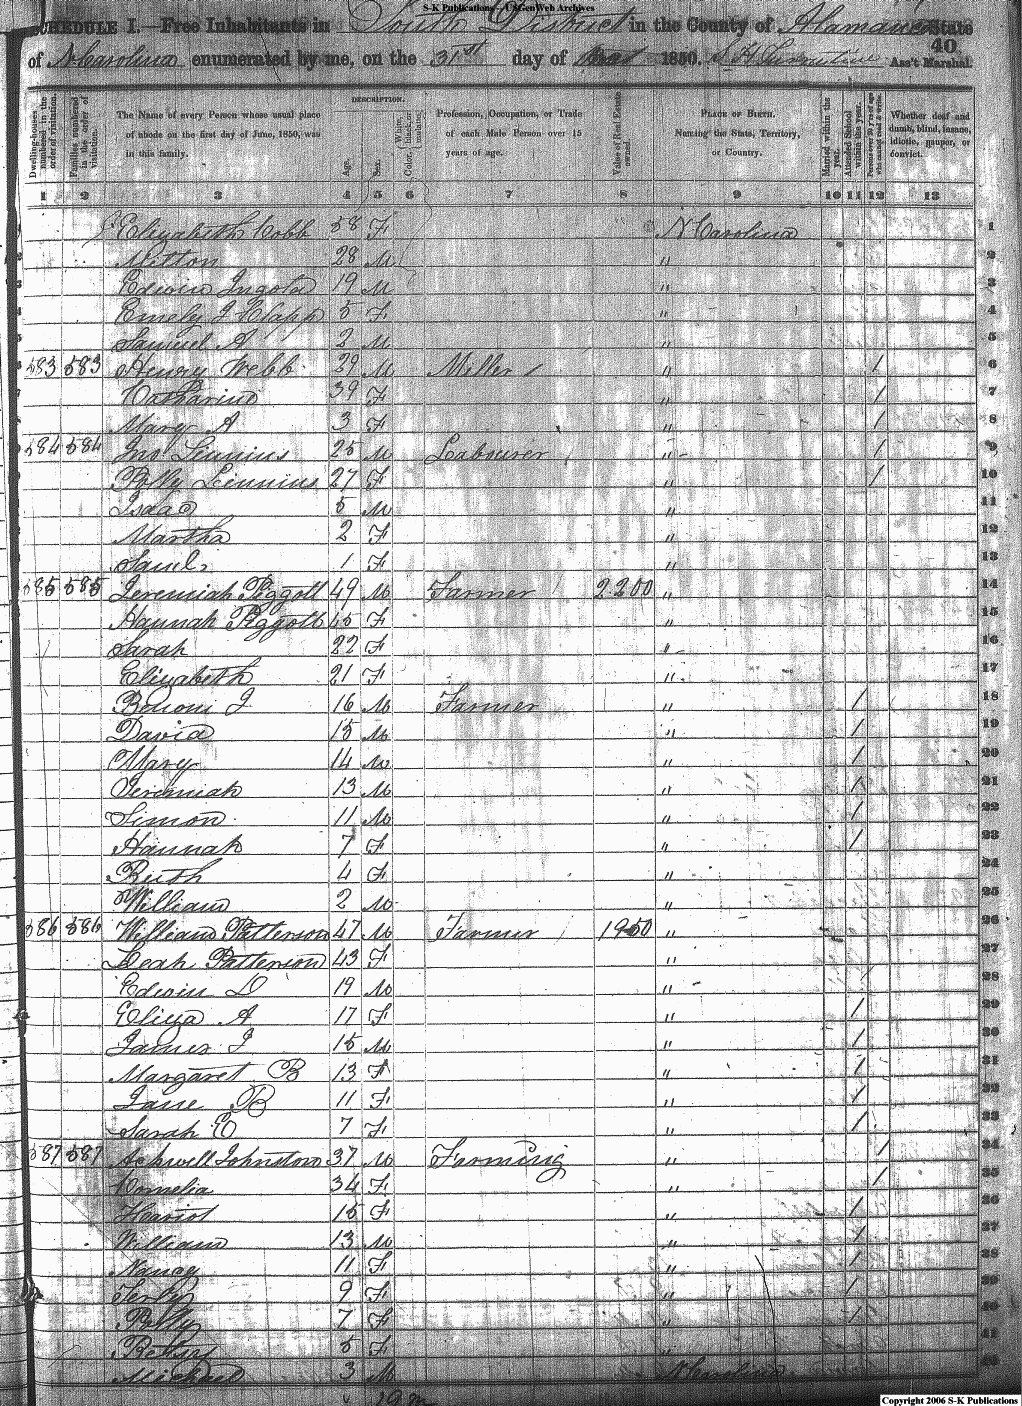 S-K Publications - USGenWeb Archives
SCHEDULE I.—Free Inhabitants in South District in the County of Alamance State
of N Carolina enumerated by me, on the 31st day of 1850. Ass't Marshal.
40
Dwelling-houses numbered in the order of visitation.
Families numbered in the order of visitation.
The Name of every Person whose usual place of abode on the first day of June, 1850, was in this family.
DESCRIPTION.
Age.
Sex.
Color, White, black, or mulatto.
Profession, Occupation, or Trade of each Male Person over 15 years of age.
Value of Real Estate owned.
PLACE OF BIRTH. Naming the State, Territory, or Country.
Married within the year.
Attended School within the year.
Persons over 20 y'rs of age who cannot read & write.
Whether deaf and dumb, blind, insane, idiotic, pauper, or convict.
1 2 3 4 5 6 7 8 9 10 11 12 13
Elizabeth Cobb 58 F N Carolina 1
Milton 28 M " 2
Edwin Ingold 19 M " 3
Emely J Clapp 5 F " 4
Samuel A 2 M " 5
583 583 Henry Webb 29 M Miller / " / 6
Catharine 39 F " / 7
Mary A 3 F " / 8
584 584 Jno 25 M Labourer / " / 9
Polly 27 F " / 10
Isaac 5 M " 11
Martha 2 F " 12
Saml. 1 F " 13
585 585 Jeremiah Piggott 49 M Farmer / 2200 " 14
Hannah Piggott 45 F " 15
Sarah 22 F " 16
Elizabeth 21 F " 17
J 16 M Farmer " / 18
David 15 M " / 19
Mary 14 M " / 20
Jeremiah 13 M " / 21
Simon 11 M " / 22
Hannah 7 F " / 23
Ruth 4 F " 24
William 2 M " 25
586 586 William Patterson 47 M Farmer / 1950 " 26
Leah Patterson 43 F " 27
Edwin D 19 M " 28
Eliza A 17 F " / 29
James J 15 M " / 30
Margaret B 13 F " / 31
Jane B 11 F " / 32
Sarah E 7 F " / 33
587 587 Johnston 37 M Farming " / 34
Cornelia 34 F " / 35
Hariot 15 F " / 36
William 13 M " / 37
Nancy 11 F " / 38
9 F " / 39
Polly 7 F " / 40
Betsy 5 F 41
Michael 3 M N Carolina 42
Copyright 2006 S-K Publications